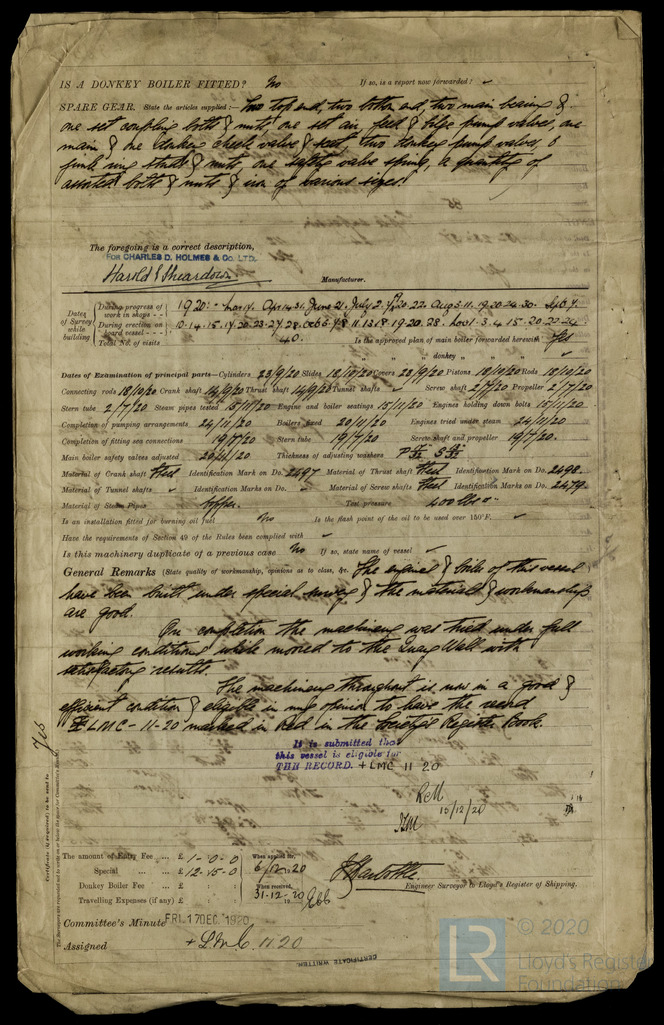 IS A DONKEY BOILER FITTED? No If so, is a report now forwarded? ✓
SPARE GEAR. State the articles supplied:— Two top end, two bottom end, two main bearing &
one set coupling bolts & nuts, one set air, feed & bilge pump valves, one
main & one donkey check valve & seat, two donkey pump valves, 6
junk ring studs & nuts, one safety valve spring, a quantity of
assorted bolts & nuts & iron of various sizes.
The foregoing is a correct description,
FOR CHARLES D. HOLMES & CO. LTD.
Harold Sheardown Manufacturer.
Dates of Survey while building
During progress of work in shops - - 1920:- Mar 17. Apr 14. 31. June 21. July 2. 20. 22. Aug 5. 11. 19. 20. 24. 30. Sep 7.
During erection on board vessel - - - 10. 14. 15. 17. 20. 23. 27. 28. Oct 5. 7. 8. 11. 13. 18. 19. 20. 28. Nov 1. 3. 4. 15. 20. 22. 24.
Total No. of visits 40. Is the approved plan of main boiler forwarded herewith Yes
" " " donkey " " " ✓
Dates of Examination of principal parts—Cylinders 23/9/20 Slides 18/10/20 Covers 23/9/20 Pistons 18/10/20 Rods 18/10/20
Connecting rods 18/10/20 Crank shaft 14/9/20 Thrust shaft 14/9/20 Tunnel shafts ✓ Screw shaft 2/7/20 Propeller 2/7/20
Stern tube 2/7/20 Steam pipes tested 15/11/20 Engine and boiler seatings 15/11/20 Engines holding down bolts 15/11/20
Completion of pumping arrangements 24/11/20 Boilers fixed 20/11/20 Engines tried under steam 24/11/20
Completion of fitting sea connections 19/7/20 Stern tube 19/7/20 Screw shaft and propeller 19/7/20.
Main boiler safety valves adjusted 24/11/20 Thickness of adjusting washers
Material of Crank shaft Steel Identification Mark on Do. 2497 Material of Thrust shaft Steel Identification Mark on Do. 2498.
Material of Tunnel shafts ✓ Identification Marks on Do. ✓ Material of Screw shafts Steel Identification Marks on Do. 2479.
Material of Steam Pipes Copper. Test pressure 400 lbs □"
Is an installation fitted for burning oil fuel No Is the flash point of the oil to be used over 150°F. ✓
Have the requirements of Section 49 of the Rules been complied with ✓
Is this machinery duplicate of a previous case No If so, state name of vessel ✓
General Remarks (State quality of workmanship, opinions as to class, &c. The engines & boiler of this vessel
have been built under special survey & the materials & workmanship
are good.
On completion the machinery was tried under full
working conditions while moored to the Quay Wall with
satisfactory results.
The machinery throughout is now in a good &
efficient condition & eligible in my opinion to have the record
✠ LMC - 11-20 marked in Red in the Society's Register Book.
It is submitted that
this vessel is eligible for
THE RECORD. + LMC 11 20
15/12/20
Yes
Certificate (if required) to be sent to
The amount of Entry Fee ... £ 1 - 0 - 0 When applied for,
Special ... ... £ 12 - 15 - 0 6/12/20
Donkey Boiler Fee ... £ : : When received,
Travelling Expenses (if any) £ : : 31-12-20
Engineer Surveyor to Lloyd's Register of Shipping.
Committee's Minute FRI. 17 DEC. 1920
Assigned + L.M.C. 11 20
CERTIFICATE WRITTEN.
LR © 2020
Lloyd's Register
Foundation